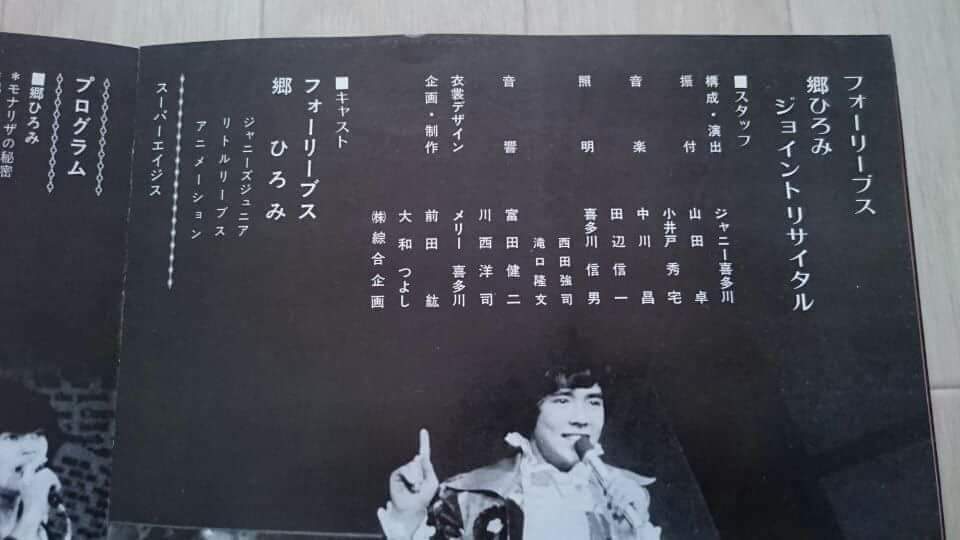 フォーリーブス
郷ひろみ
ジョイントリサイタル
■スタッフ
構成・演出 ジャニー喜多川
振付 山田卓
小井戸秀宅
音楽 中川昌
田辺信一
照明 喜多川信男
西田強司
滝口隆文
音響 富田健二
川西洋司
衣裳デザイン メリー喜多川
企画・制作 前田紘
大和つよし
㈱綜合企画
■キャスト
フォーリーブス
郷ひろみ
ジャニーズジュニア
リトルリーブス
アニメーション
スーパーエイジス
プログラム
■郷ひろみ
*モナリザの秘密